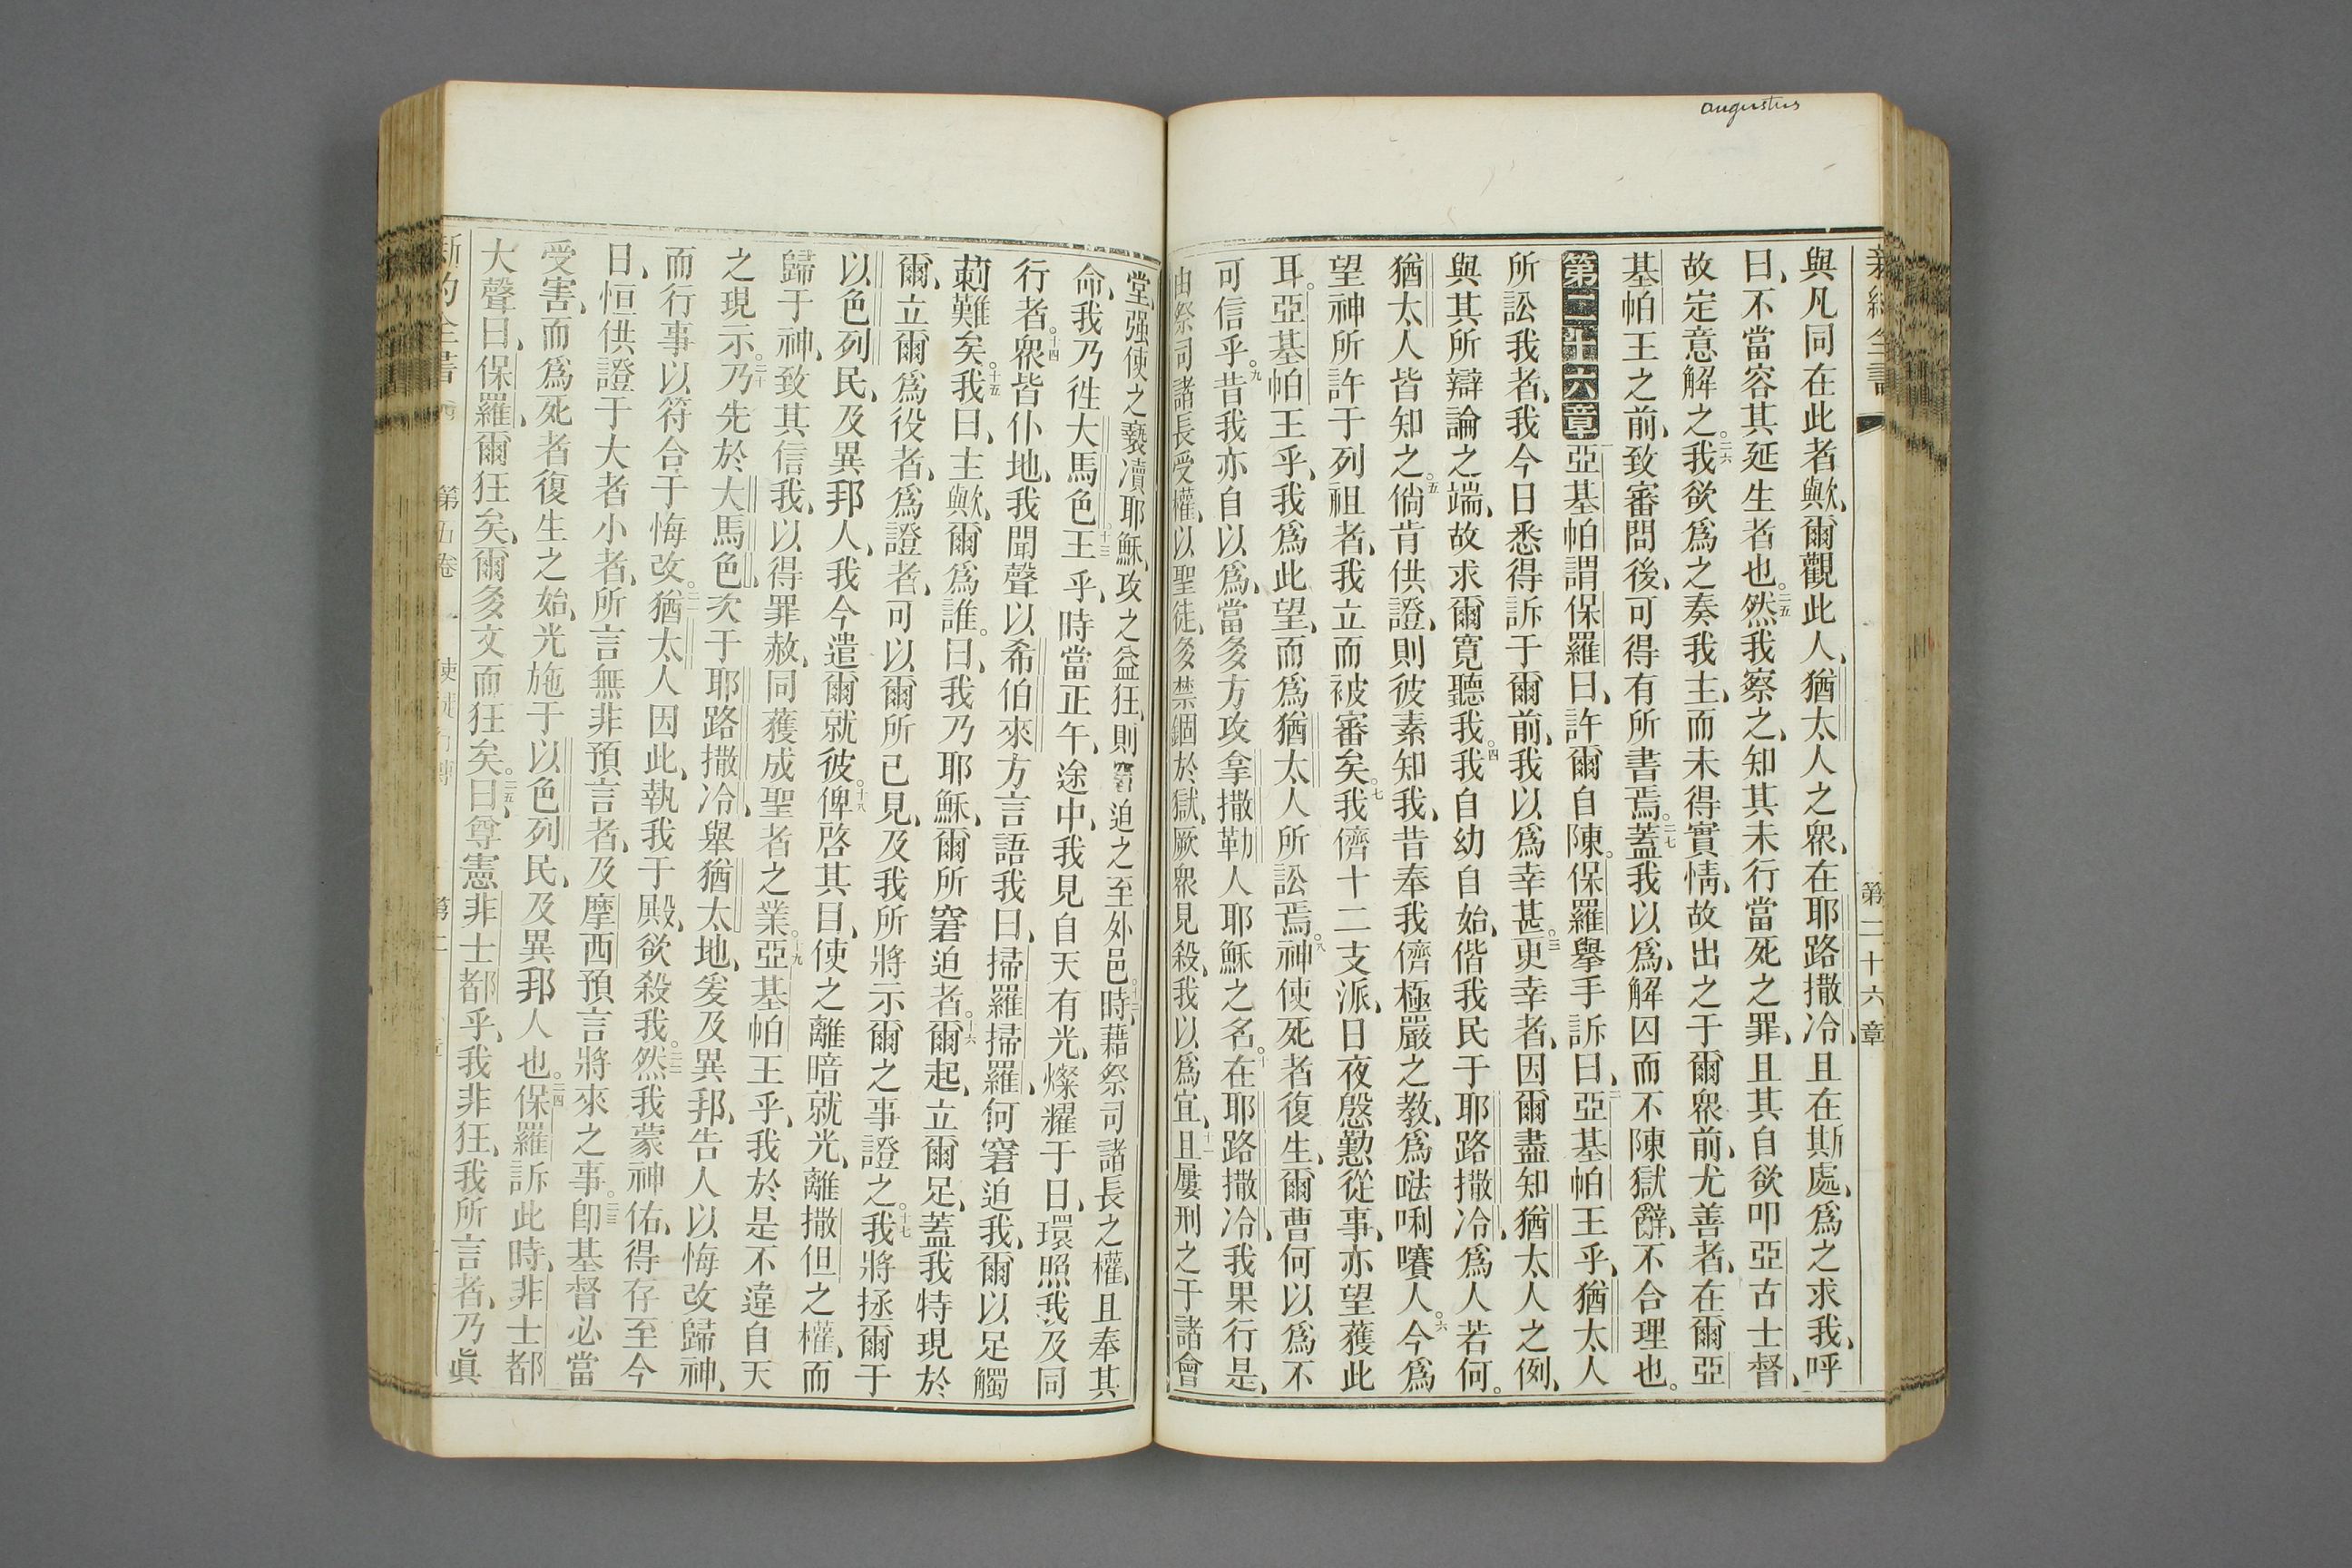 augustus
第二十六章
與凡同在此者歟、爾觀此人、猶太人之衆、在耶路撒冷、且在斯處、爲之求我、呼
曰、不當容其延生者也。二五然我察之、知其未行當死之罪、且其自欲叩亞古士督、
故定意解之。二六我欲爲之奏我主、而未得實情、故出之于爾衆前、尤善者、在爾亞
基帕王之前、致審問後、可得有所書焉。二七蓋我以爲、解囚而不陳獄辭、不合理也。
第二十六章一亞基帕謂保羅曰、許爾自陳。保羅舉手訴曰、二亞基帕王乎、猶太人
所訟我者、我今日悉得訴于爾前、我以爲幸甚。三更幸者、因爾盡知猶太人之例、
與其所辯論之端、故求爾寛聽我。四我自幼自始、偕我民于耶路撒冷、爲人若何。
猶太人皆知之。五倘肯供證、則彼素知我、昔奉我儕極嚴之教、爲𠵽唎㘔人。六今爲
望神所許于列祖者、我立而被審矣。七我儕十二支派、日夜慇懃從事、亦望獲此
耳。亞基帕王乎、我爲此望、而爲猶太人所訟焉。八神使死者復生、爾曹何以爲不
可信乎。九昔我亦自以爲、當多方攻拿撒勒人耶穌之名。十在耶路撒冷、我果行是、
由祭司諸長受權、以聖徒、多禁錮於獄、厥衆見殺、我以爲宜、十一且屢刑之于諸會
堂、强使之褻瀆耶穌、攻之益狂、則窘迫之至外邑。十二時、藉祭司諸長之權、且奉其
命、我乃往大馬色、十三王乎、時當正午、途中、我見自天有光、燦耀于日、環照我及同
行者。十四衆皆仆地、我聞聲以希伯來方言語我曰、掃羅掃羅、何窘迫我、爾以足觸
莿難矣。十五我曰、主歟、爾爲誰。曰、我乃耶穌、爾所窘迫者。十六爾起、立爾足、蓋我特現於
爾、立爾爲役者、爲證者、可以爾所已見、及我所將示爾之事證之。十七我將拯爾于
以色列民、及異邦人、我今遣爾就彼。十八俾啓其目、使之離暗就光、離撒但之權、而
歸于神、致其信我、以得罪赦、同獲成聖者之業。十九亞基帕王乎、我於是不違自天
之現示。二十乃先於大馬色、次于耶路撒冷、舉猶太地、爰及異邦、告人以悔改歸神、
而行事以符合于悔改。二一猶太人因此、執我于殿、欲殺我。二二然我蒙神佑、得存至今
日、恒供證于大者小者、所言無非預言者、及摩西預言將來之事。二三卽基督必當
受害、而爲死者復生之始、光施于以色列民、及異邦人也。二四保羅訴此時、非士都
大聲曰、保羅、爾狂矣、爾多文而狂矣。二五曰、尊憲非士都乎、我非狂、我所言者、乃眞
第五卷